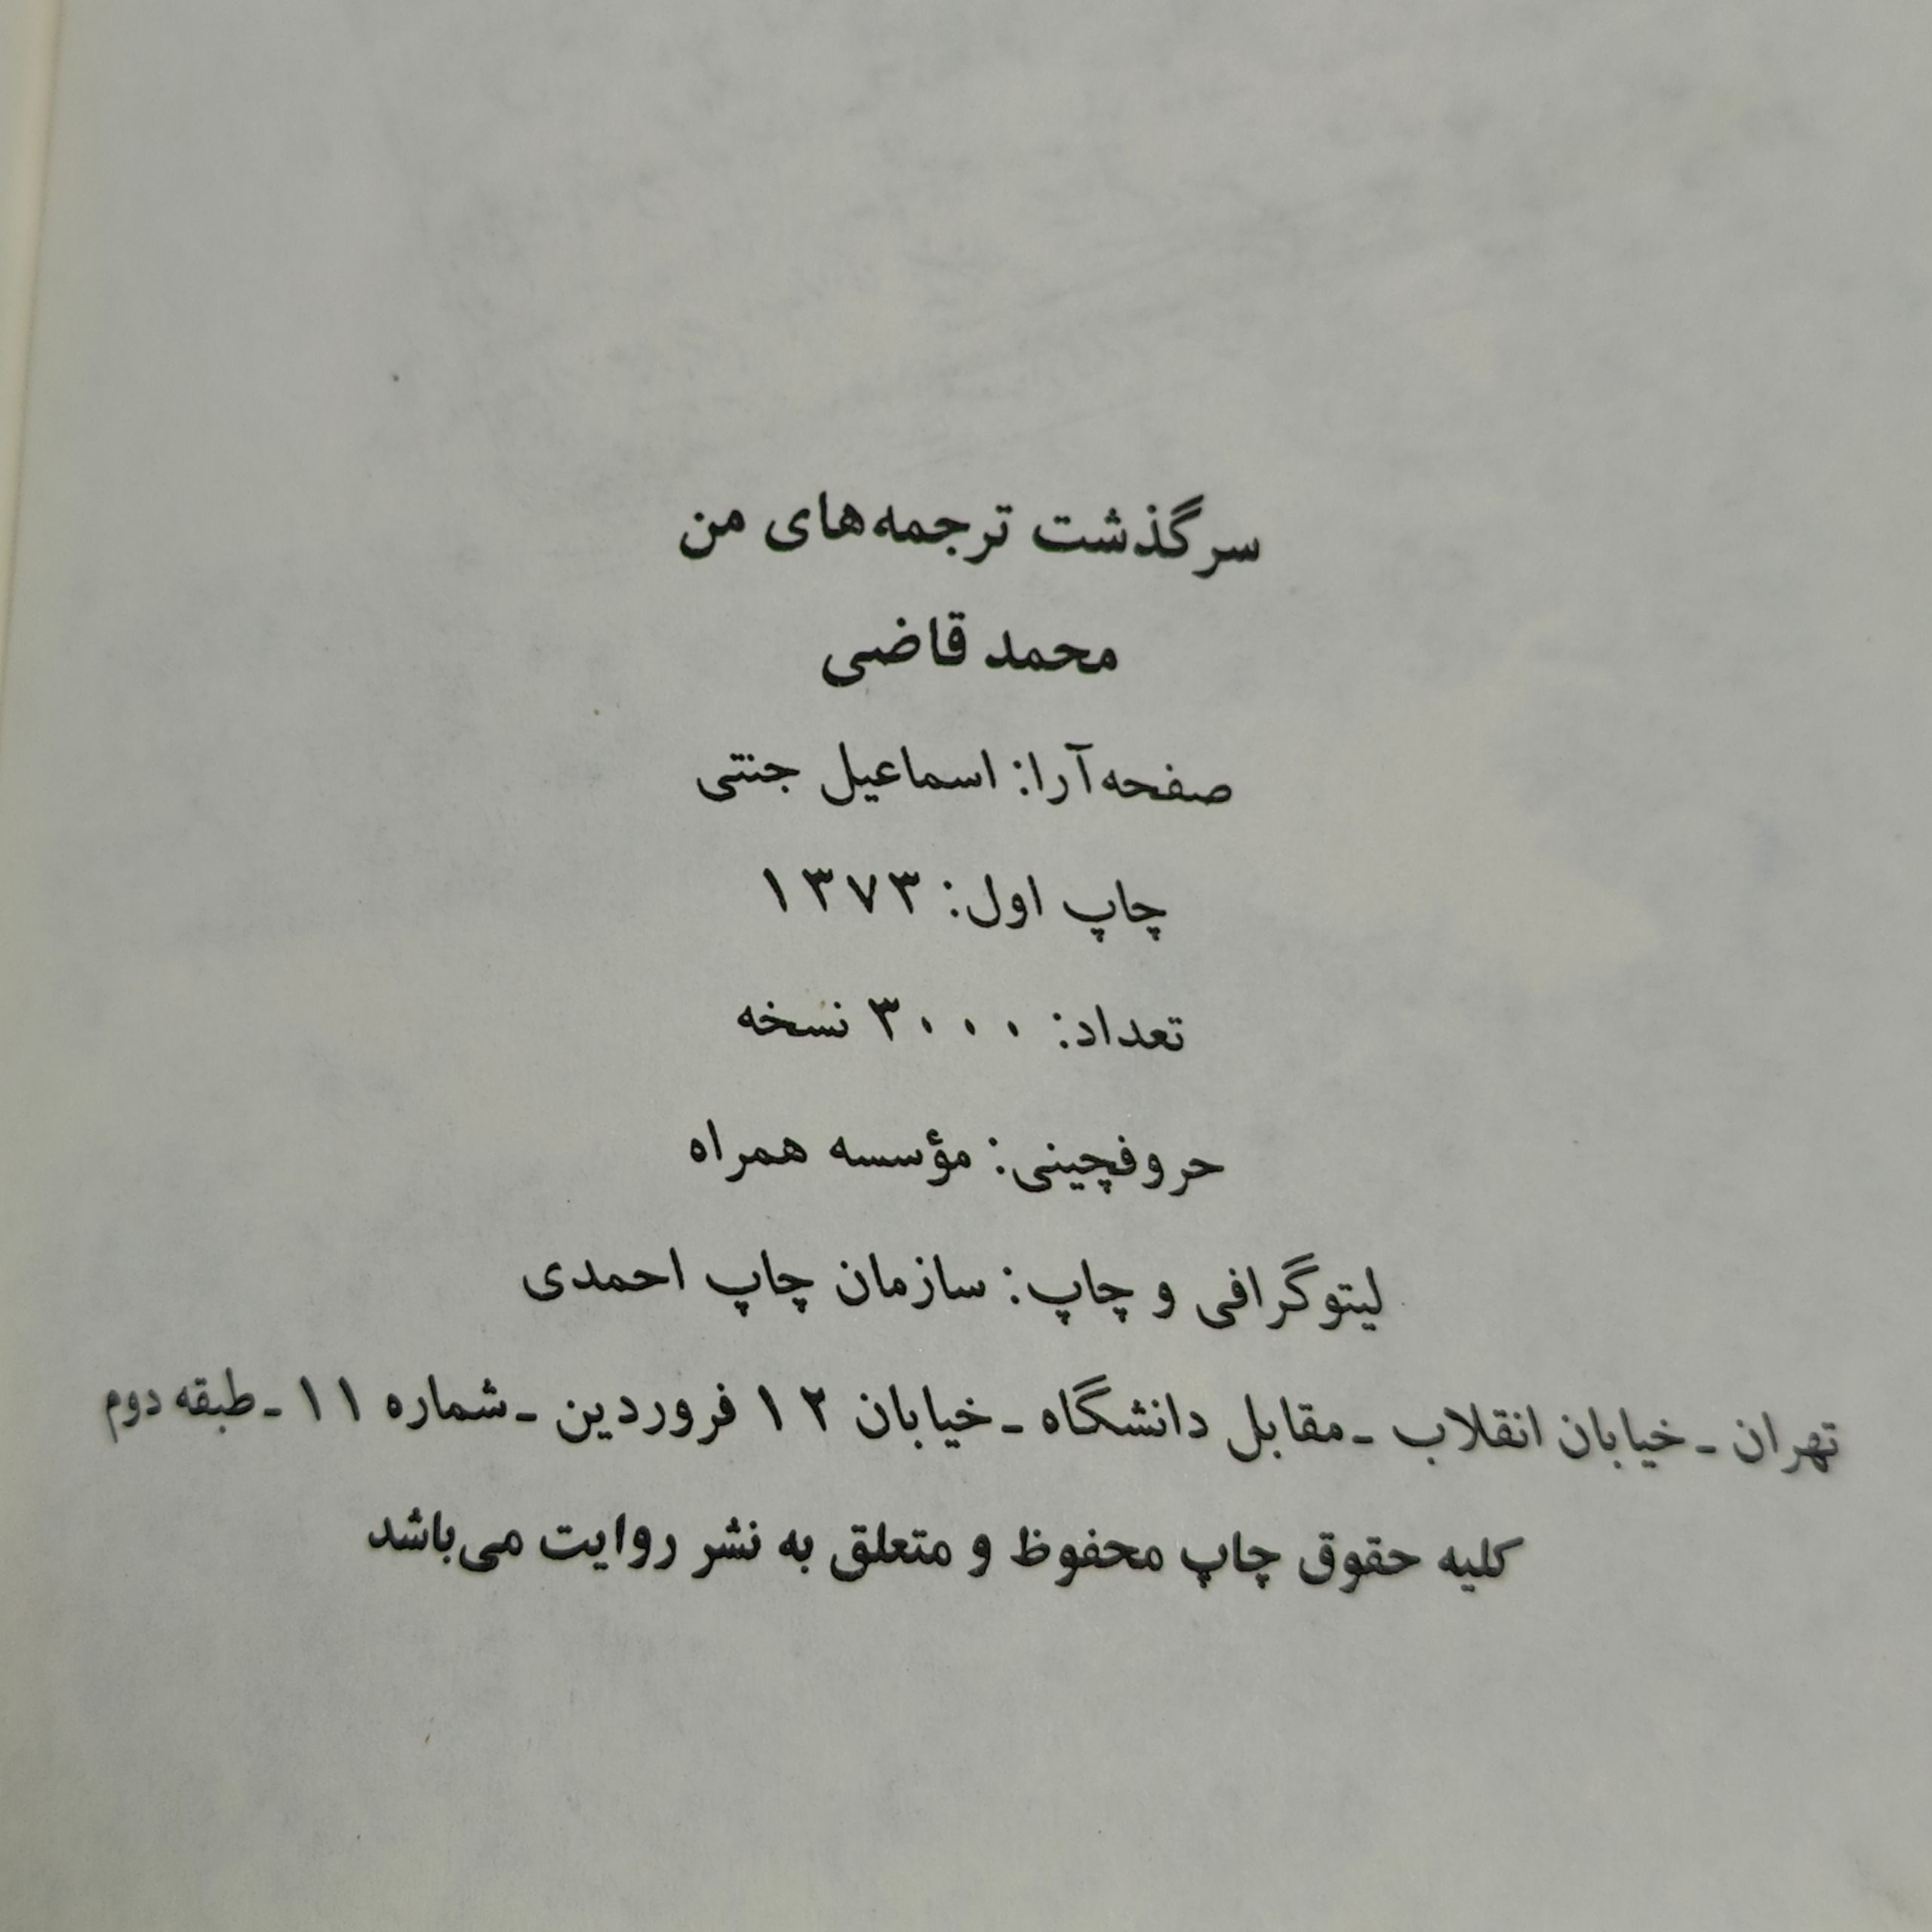 سرگذشت ترجمه‌های من
محمد قاضی
صفحه‌آرا: اسماعیل جنتی
چاپ اول: ۱۳۷۳
تعداد: ۳۰۰۰ نسخه
حروفچینی: مؤسسه همراه
لیتوگرافی و چاپ: سازمان چاپ احمدی
تهران ـ خیابان انقلاب ـ مقابل دانشگاه ـ خیابان ۱۲ فروردین ـ شماره ۱۱ ـ طبقه دوم
کلیه حقوق چاپ محفوظ و متعلق به نشر روایت می‌باشد